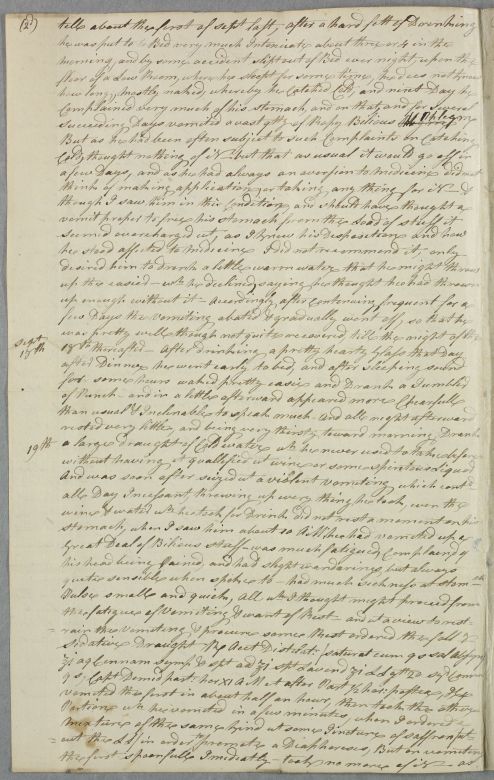 (2)
till about the first of Sept last, after a hard fitt of Drinking
he was put to Bed very much Intoxicate about three or 4 in the
morning, and by some accident slipt out of Bed over night, upon the
floor of a Low Room, where he sleept for some time, he does not know
how long, mostly naked whereby he Catched Cold, and next Day he
Complained very much of his Stomach, and on that, and for Several
Succeeding Days vomited a vast of Ropy Bilious Phlegm
But as he had been often subject to such Complaints on Catching
Cold, thought nothing of it but that as usual it would go off in
a few Days, and as he had always an aversion to medicine did not
think of making application, or taking any thing for it &
though I saw him in this Condition, and should have thought a
vomit proper to free his stomach from the Load of stuff it
seemed overcharged wt, as I knew his Disposition and how
he stood affected to medicine I did not recommend it, only
desired him to drink a little warm water that he might throw
up the easier – wch he declined, saying he thought he had thrown
up enough without it – accordingly after Continuing frequent for a
few Days the vomiting abated & gradually went off, so that he
was pretty well though not quite recovered, till the night of the
Sept
18th
18th thereafter – After drinking a pretty hearty Glass that Day
after Dinner he went early to bed, and after sleeping sound
for some hours waked pretty easie and Drank a Tumbler
of Punch – and in a little afterward appeared more Chearfull
than usual & Inclinable to speak much and all night afterward
rested very little, and being very thirsty toward morning, Drank
19th
a large Draught of Cold water wch he never used to take before
without having it quallified wt wine or some spirituous liquor
And was soon after seized wt a violent vomiting, which conti
all Day Incessant, throwing up every thing he took, even the
wine & water wch he took for Drink did not rest a moment on his
stomach, when I saw him about 10 at he had vomited up a
Great Deal of Bilious stuff – was much fatigued, Complaind of
his head being pained, and had slight wanderings but always
quite sensible when spoke to – had much sickness at stom–
Pulse small and quick, All wch I thought might proceed from
the fatigue of vomiting & want of Rest – and wt a view to rest–
rain the vomiting & procure some Rest ordered the foll
Sedative Draught
vomited the first in about half an hour, then took the other
Portion wch he vomited in a few minutes, when I ordered a
mixture of the same kind wt some Tincture of saffron
out the in order to promote a Diaphoresis, But on vomiting
the first spoonfull Imediatly – took no more of it – as